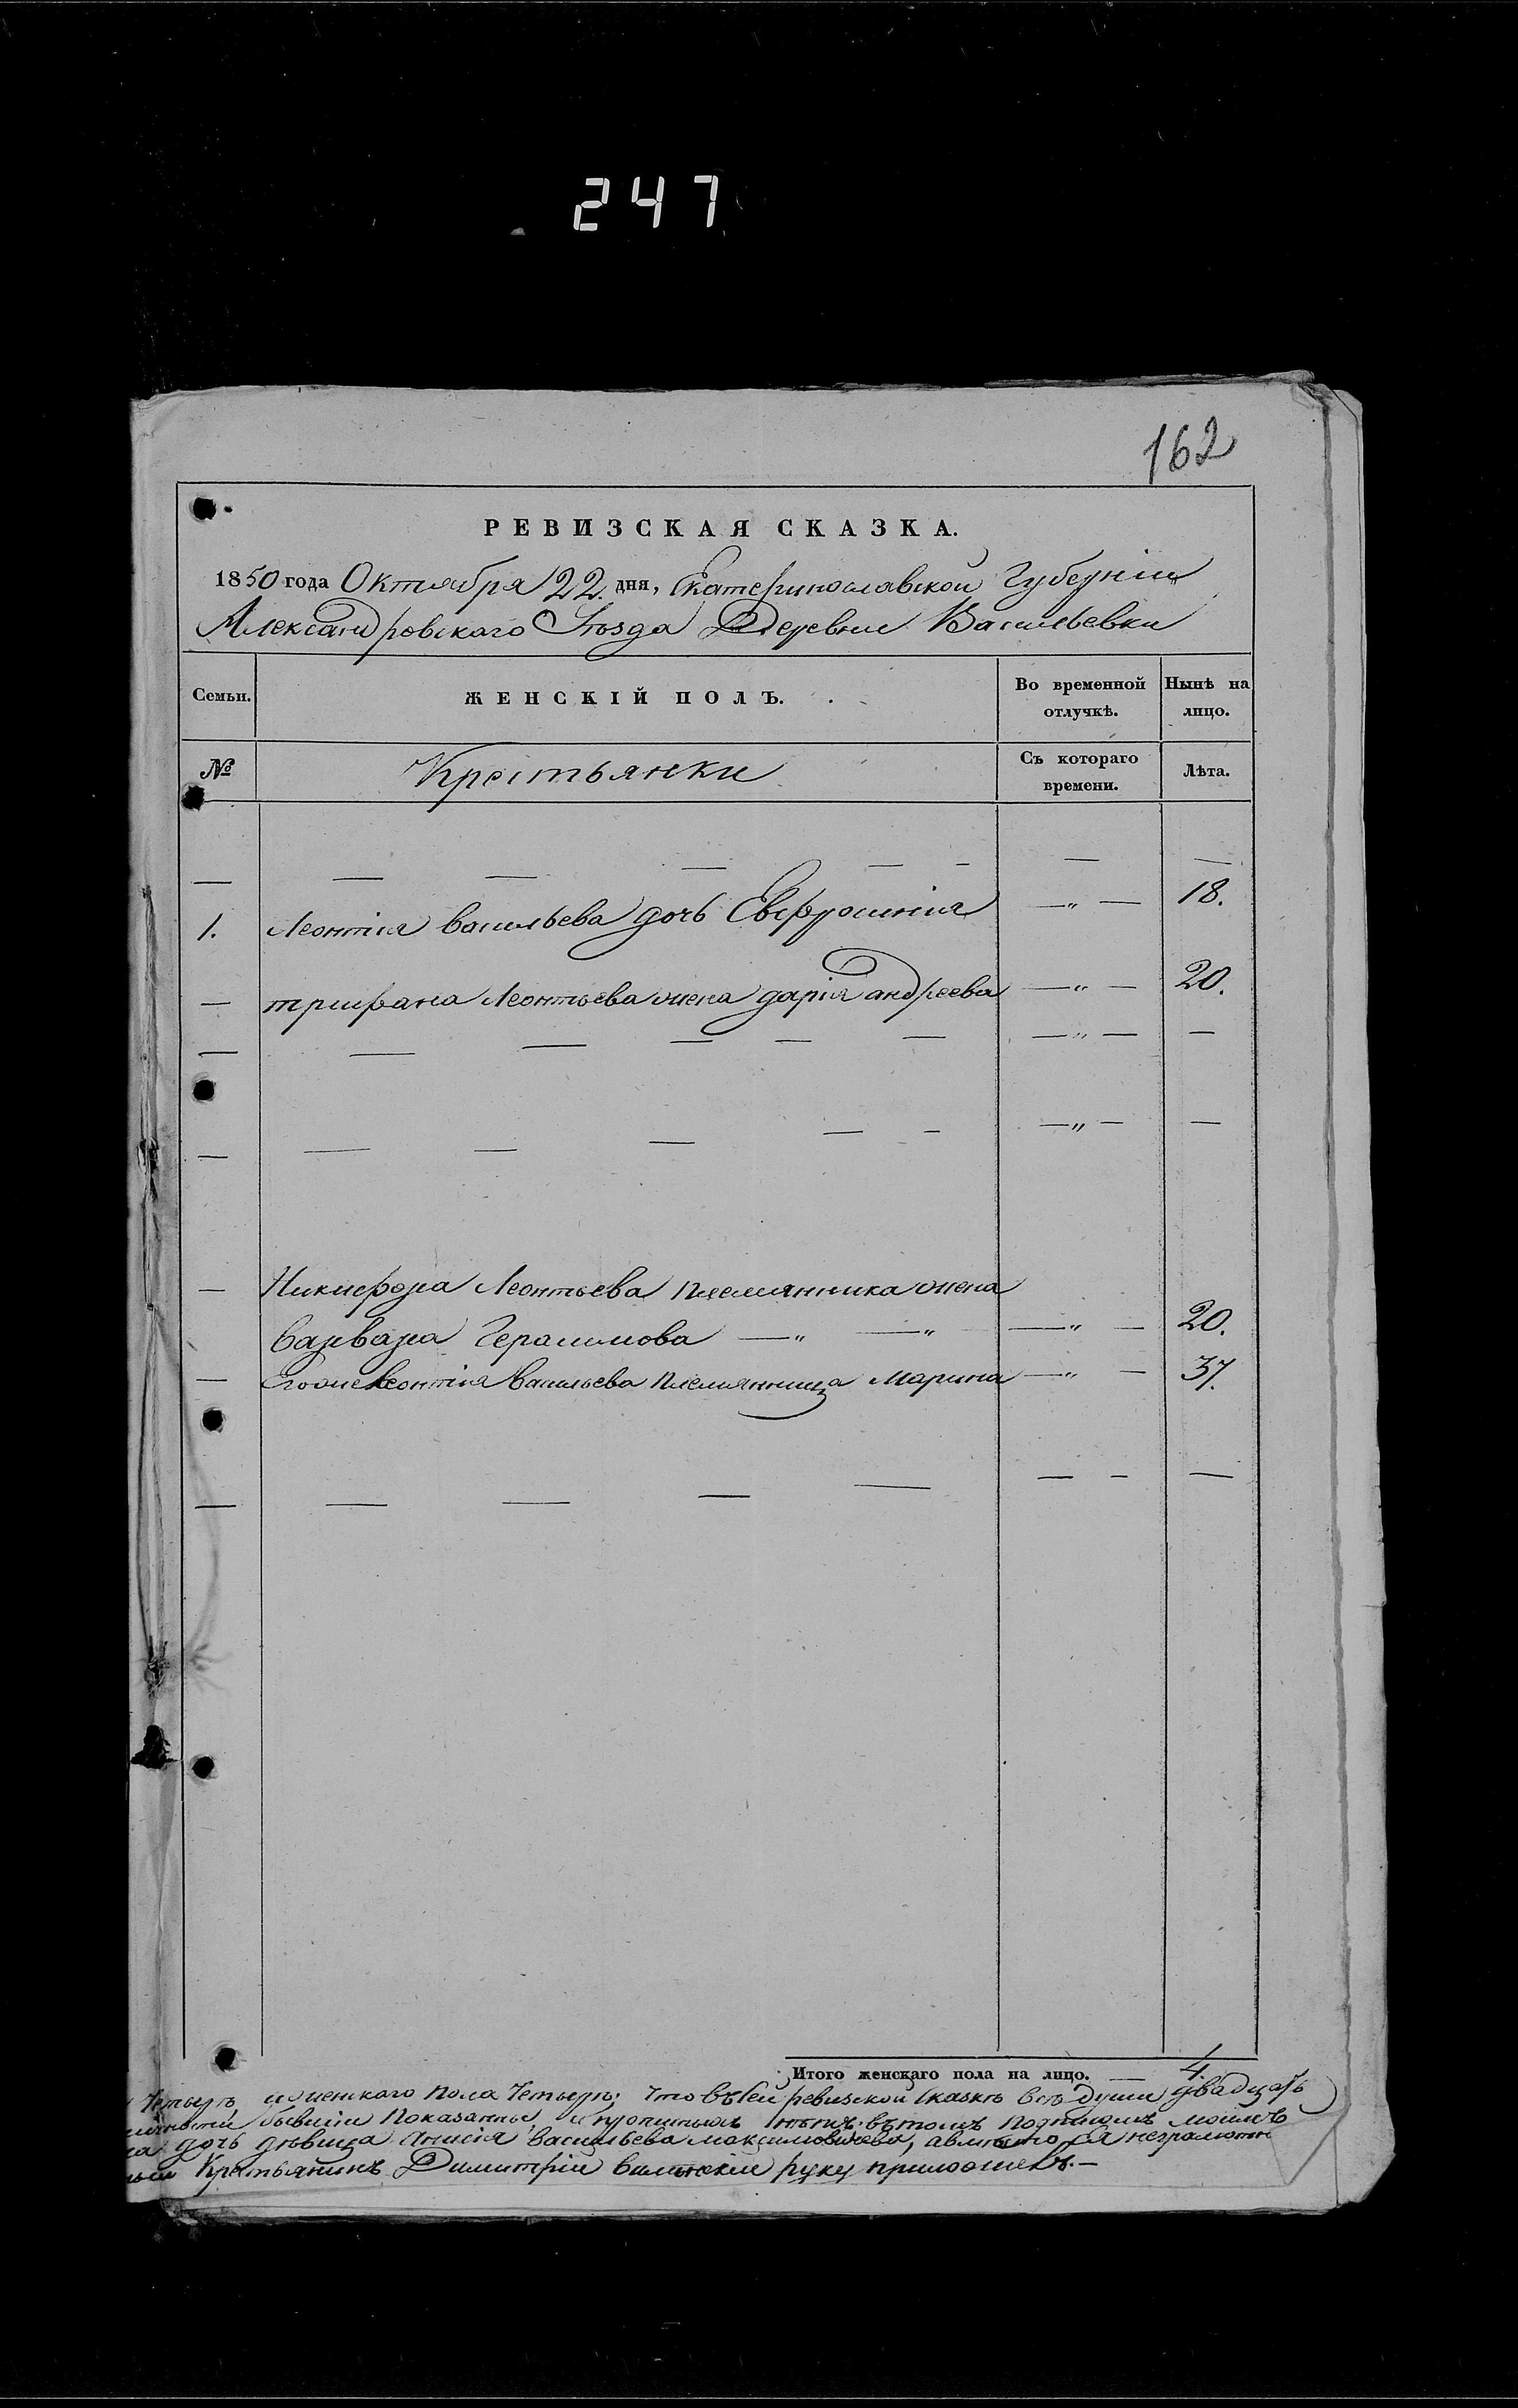 247
162
РЕВИЗСКАЯ СКАЗКА.
1850 года Октября 22. дня, Екатеринославской Губерніи
Александровскаго Уѣзда Деревни Васильевки
Семьи. ЖЕНСКІЙ ПОЛЪ. Во временной отлучкѣ. Нынѣ на лицо.
№ Крестьянки Съ котораго времени. Лѣта.
— — — — — — — —
1. Леонтія васильева дочь Евфросинія —„— 18.
— трифана Леонтьева жена дарія андреева —„— 20.
— — — — — — —„— —
— — — — — — —„— —
— Никифора Леонтьева племянника жена
варвара Герасимова —„ —„ —„— 20.
— Егоже Леонтія васильева племянница Марина —„— 37.
— — — — — — — —
Итого женскаго пола на лицо. — 4.
Четырѣ, и женскаго пола Четырѣ; что въ сей ревизской сказкѣ всѣ души двадцать
бывшіи показанны, и прописныхъ нѣтъ. вътомъ подпишомъ моимъ
дочь дѣвица Анисія васильева максимовичева, авмѣсто ея неграмотн
Крестьянинъ Димитрій руку приложилъ.—